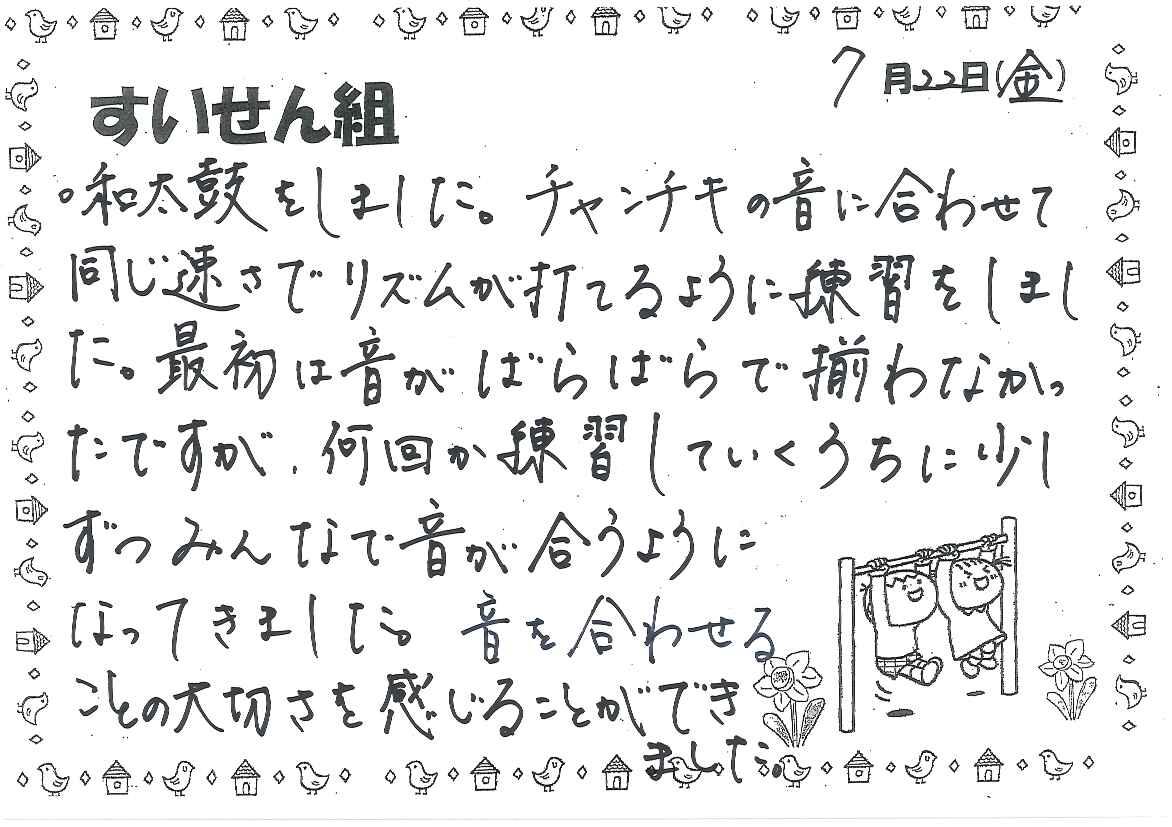 7月22日(金)
すいせん組
。和太鼓をしました。チャンチキの音に合わせて
同じ速さでリズムが打てるように練習をしまし
た。最初は音がばらばらで揃わなかっ
たですが、何回か練習していくうちに少し
ずつみんなで音が合うように
なってきました。音を合わせる
ことの大切さを感じることができ
ました。